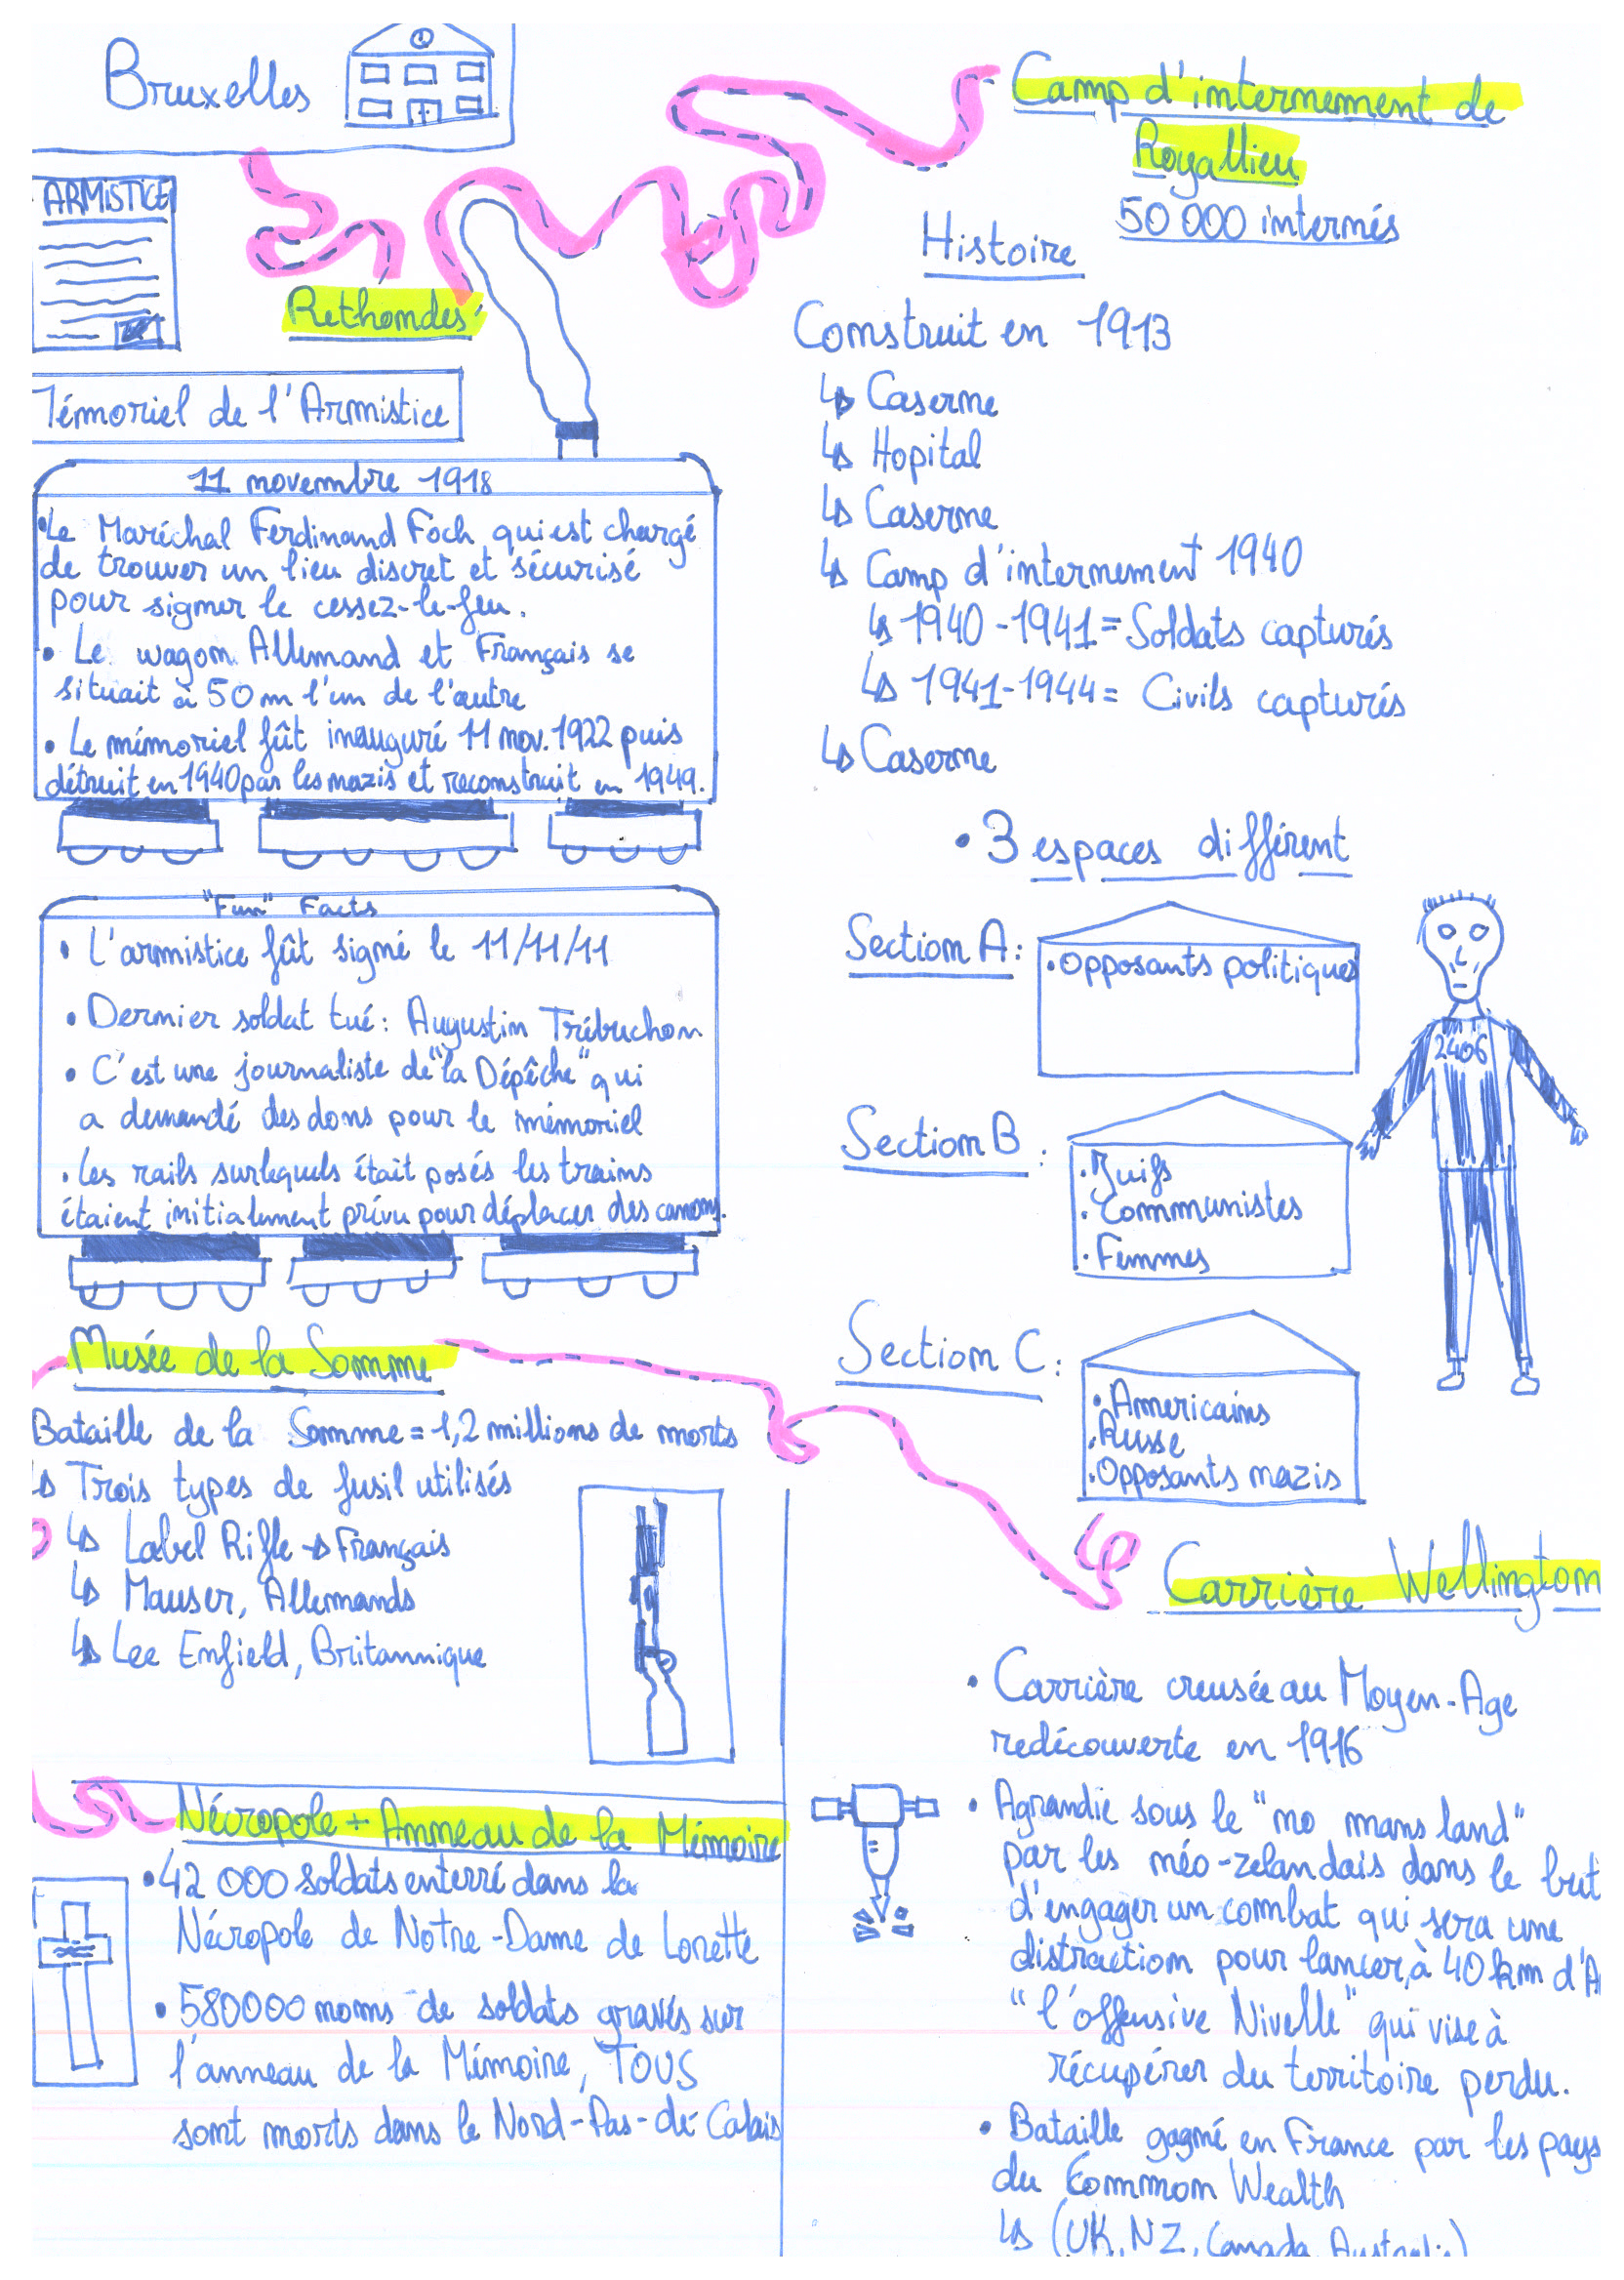 Bruxelles
ARMISTICE
Rethondes
Mémoriel de l'Armistice
11 novembre 1918
•Le Maréchal Ferdinand Foch qui est chargé
de trouver un lieu discret et sécurisé
pour signer le cessez-le-feu.
• Le wagon Allemand et Français se
situait à 50m l'un de l'autre
• Le mémoriel fût inauguré 11 nov. 1922 puis
détruit en 1940 par les nazis et reconstruit en 1949.
"Fun" Facts
• L'armistice fût signé le 11/11/11
• Dernier soldat tué: Augustin Trébuchon
• C'est une journaliste de "la Dépêche" qui
a demandé des dons pour le mémoriel
• Les rails surlequels était posés les trains
étaient initialement prévu pour déplacer des canons.
Camp d'internement de
Royallieu
50 000 internés
Histoire
Construit en 1913
↳ Caserne
↳ Hopital
↳ Caserne
↳ Camp d'internement 1940
↳ 1940-1941 = Soldats capturés
↳ 1941-1944 = Civils capturés
↳ Caserne
• 3 espaces différent
Section A:
•Opposants politiques
2406
Section B:
•Juifs
•Communistes
•Femmes
Section C:
•Americains
•Russe
•Opposants nazis
Musée de la Somme
Bataille de la Somme = 1,2 millions de morts
↳ Trois types de fusil utilisés
↳ Label Rifle → Français
↳ Mauser, Allemands
↳ Lee Enfield, Britannique
Nécropole + Anneau de la Mémoire
•42 000 soldats enterré dans la
Nécropole de Notre-Dame de Lorette
• 580000 noms de soldats gravés sur
l'anneau de la Mémoire, TOUS
sont morts dans le Nord-Pas-de-Calais
Carrière Wellington
• Carrière creusée au Moyen-Age
redécouverte en 1916
• Agrandie sous le "no mans land"
par les néo-zelandais dans le but
d'engager un combat qui sera une
distraction pour lancer, à 40 km d'A
"l'offensive Nivelle" qui vise à
récupérer du territoire perdu.
• Bataille gagné en France par les pays
du Common Wealth
↳ (UK, NZ, Canada, Australie)